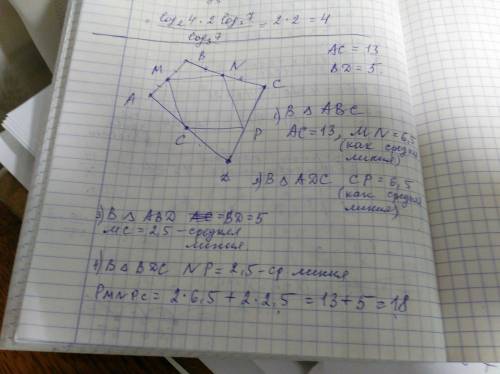 = log₂4 · 2 log₃7 / log₃7 = 2·2 = 4
AC = 13
BD = 5.
B
M
N
C
A
C
P
D
1) В △ ABC
AC = 13, MN = 6,5
(как средняя
линия)
2) В △ ADC CP = 6,5
(как средняя
линия)
3) В △ ABD BD = 5
MC = 2,5 - средняя
линия
4) В △ BDC NP = 2,5 - ср линия
PMNPC = 2·6,5 + 2·2,5 = 13 + 5 = 18